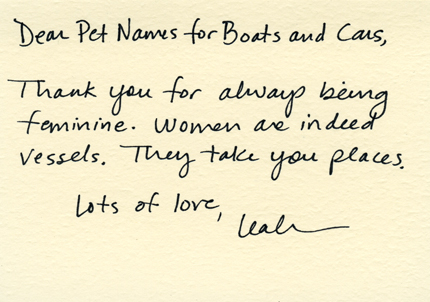 Dear Pet Names for Boats and Cars,
Thank you for always being
feminine. Women are indeed
vessels. They take you places.
Lots of love,
Leah